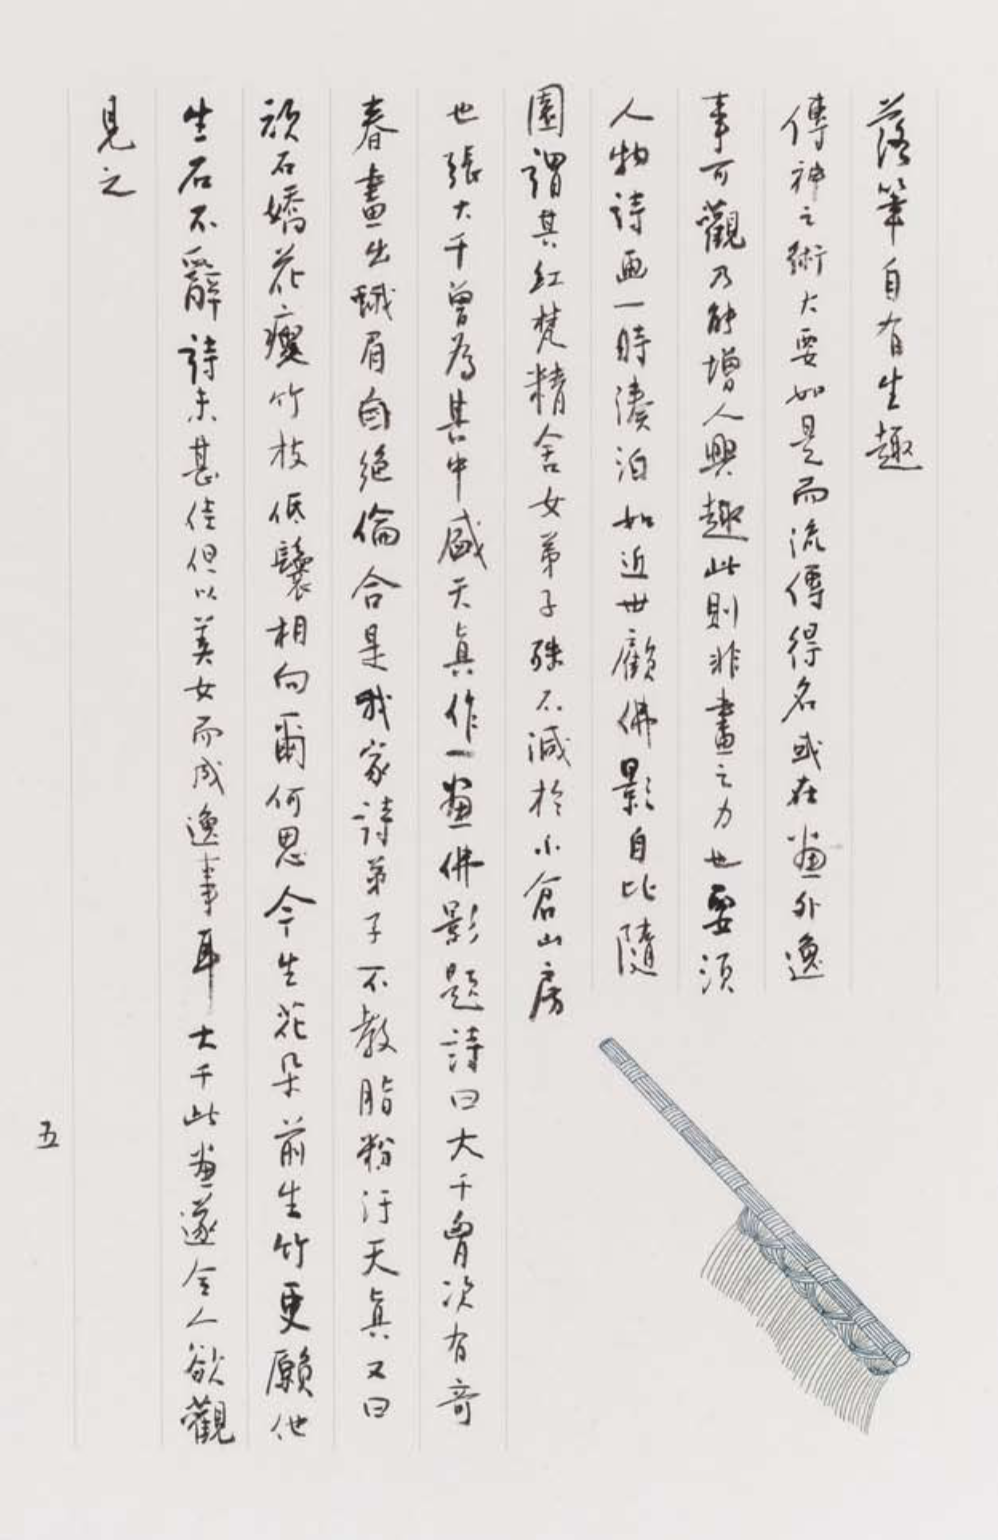 落筆自有生趣
傳神之術大要如是而流傳得名或在畫外逸
事可觀乃能增人興趣此則非畫之力也要須
人物詩画一時湊泊如近世顧佛影自比隨
園謂其紅梵精舍女弟子殊不減於小倉山房
也張大千曾為其中盛天真作一畫佛影題詩曰大千胷次有奇
春畫出蛾眉自絕倫合是我家詩弟子不教脂粉汙天真又曰
頑石嬌花瘦竹枝低鬟相向爾何思今生花朵前生竹更願他
生石不辭詩未甚佳但以美女而成逸事耳大千此畫遂令人欲觀
見之
五